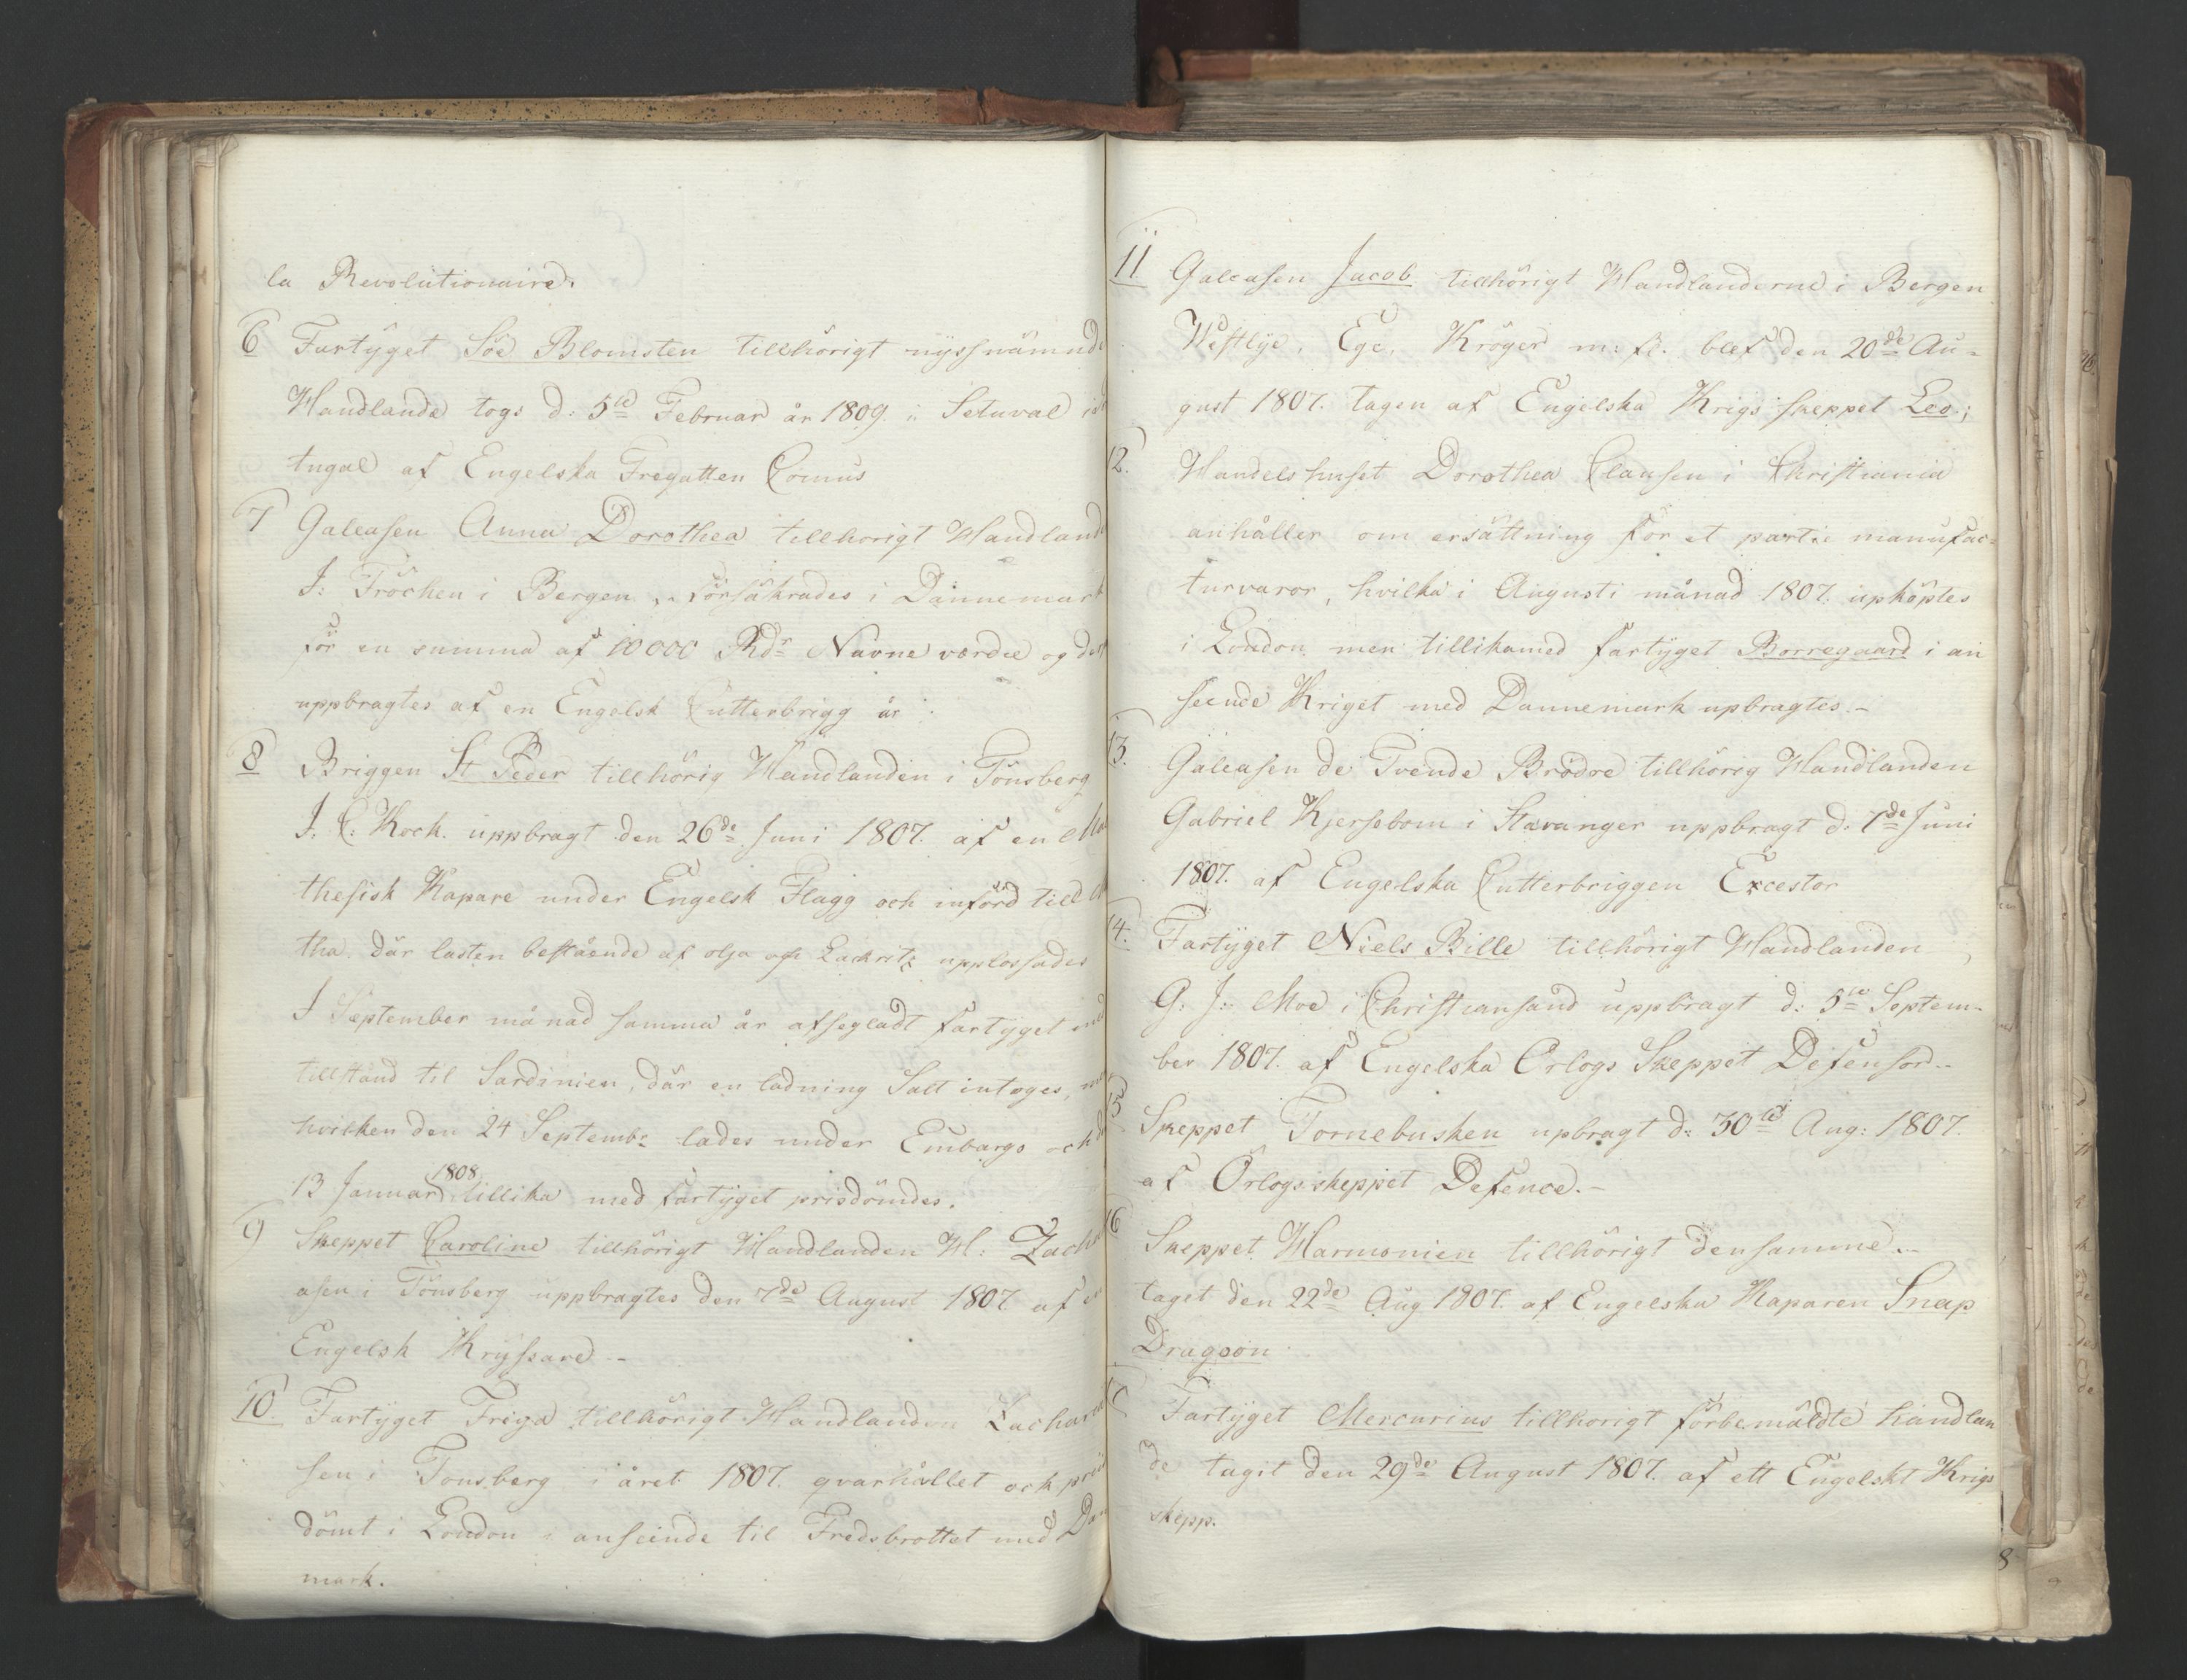 la Revolutionaire.
6 Fartyget Söe Blomsten tillhörigt nyssnämnde
Handlande togs d: 5te Februar år 1809. i Setuval i
tugal af Engelska Fregatten Comus
7 Galeasen Anna Dorothea tillhörigt Handland
J: Fröchen i Bergen, försäkrades i Dannemark
för en summa af 10000 Rdr Navne værdie og
uppbragtes af en Engelsk Cutterbrigg år
8 Briggen St Peder tillhörig Handlanden i Tönsberg
J. C: Koch. uppbragt den 26de Juni 1807. af en Mal
thesisk Kapare under Engelsk Flagg och införd till
tha, där lasten bestående af olja och Lackritz upplossades
I September månad samma år afsegladt fartyget
tillstånd til Sardinien, där en ladning Salt intoges,
hvilken den 24 Septembr lades under Embargo och
13 Januar 1808 tillika med fartyget prisdömdes.
9 Skeppet Caroline tillhörigt Handlanden H: Zacha
asen i Tönsberg uppbragtes den 7de August 1807 af en
Engelsk Kryssare --
10. Fartyget Friga tillhörigt Handlanden Zacharia
sen i Tonsberg i året 1807. qvarhållet och pris
dömt i London i anseende til Fredsbrottet med Dan
mark.
11 Galeasen Jacob tillhörigt Handlanderne i Bergen
Westlye, Ege, Kröger m: fl. blef den 20de Au-
gust 1807. tagen af Engelska Krigsskeppet Leo.;
12. Handelshuset Dorothea Clausen i Christiania
anhåller om ersättning för et parti manufac-
turvaror, hvilka i Augusti månad 1807. upköptes
i London men tillikamed fartyget Borregaard i an
seende Kriget med Dannemark upbragtes.-
13. Galeasen de Tvende Brödre tillhörig Handlanden
Gabriel Kjersebom i Stavanger uppbragt d: 7de Juni
1807. af Engelska Cutterbriggen Excestor
14. Fartyget Niels Bille tillhörigt Handlanden
G. J: Moe i Christiansand uppbragt d: 5te Septem-
ber 1807. af Engelska Orlogs Skeppet Defensor.-
15 Skeppet Tornebusken upbragt d: 30te Aug: 1807.
af Orlogsskeppet Defence.-
16 Skeppet Harmonien tillhörigt densamme.-
taget den 22de Aug 1807. af Engelska Kaparen Snap
Dragoon
Fartyget Mercurius tillhorigt förbemäldte handlan
de tagit den 29de August 1807. af ett Engelskt Krigs
skepp.
8